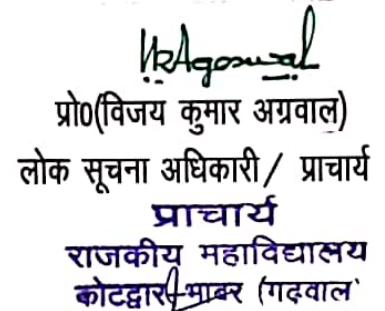 VKAgarwal
प्रो0(विजय कुमार अग्रवाल)
लोक सूचना अधिकारी/ प्राचार्य
प्राचार्य
राजकीय महाविद्यालय
कोटद्वार-भाबर (गढ़वाल